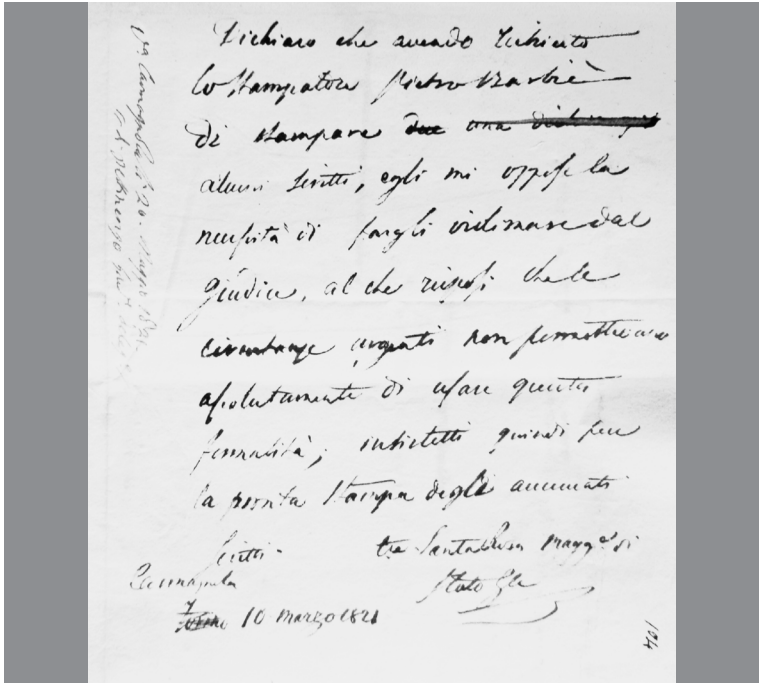 Dichiaro che avendo richiesto
lo Stampatore Pietro Barbiè
di stampare due una
alcuni scritti, egli mi oppose la
necessità di fargli vidimare dal
giudice, al che risposi che le
circostanze urgenti non permettevano
assolutamente di usare questa
formalità; insistetti quindi per
la pronta stampa degli annunati
scritti.
Santa Rosa Magg.e di
Stato Gle
Carmagnola
10 marzo 1821
104
20. Maggio 1821